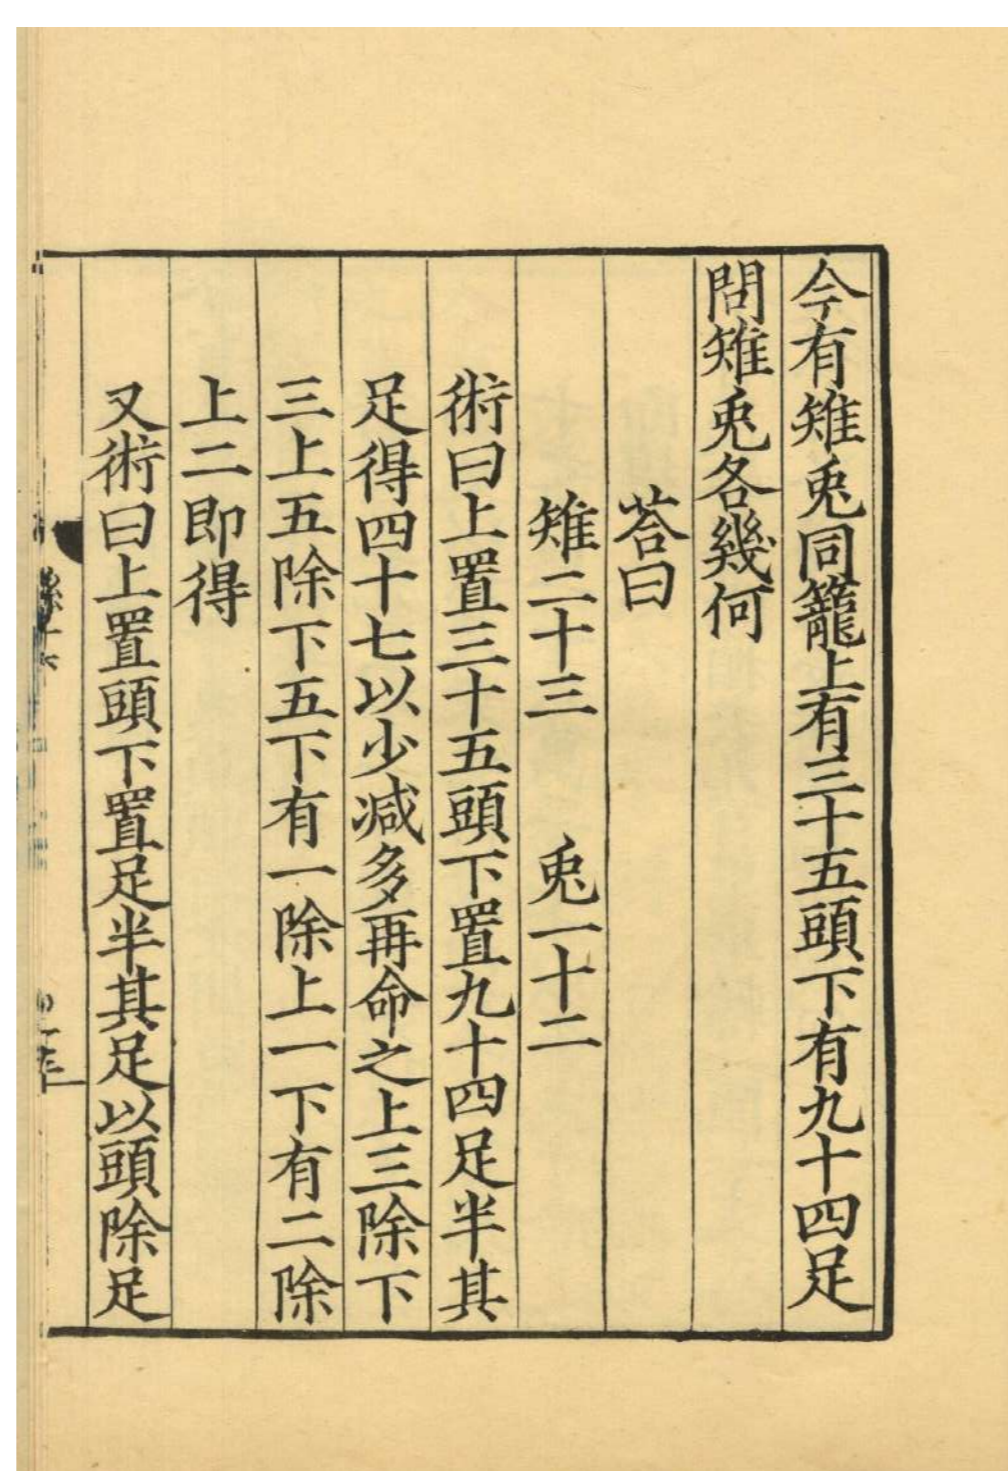 今有雉兎同籠上有三十五頭下有九十四足
問雉兎各幾何
荅曰
雉二十三　兎一十二
術曰上置三十五頭下置九十四足半其
足得四十七以少減多再命之上三除下
三上五除下五下有一除上一下有二除
上二即得
又術曰上置頭下置足半其足以頭除足